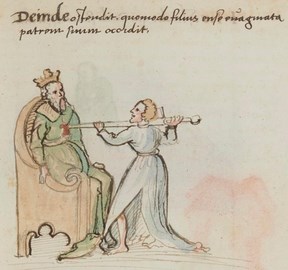 Deinde ostendit quomodo filius ense evaginata
patrem suum occidit.